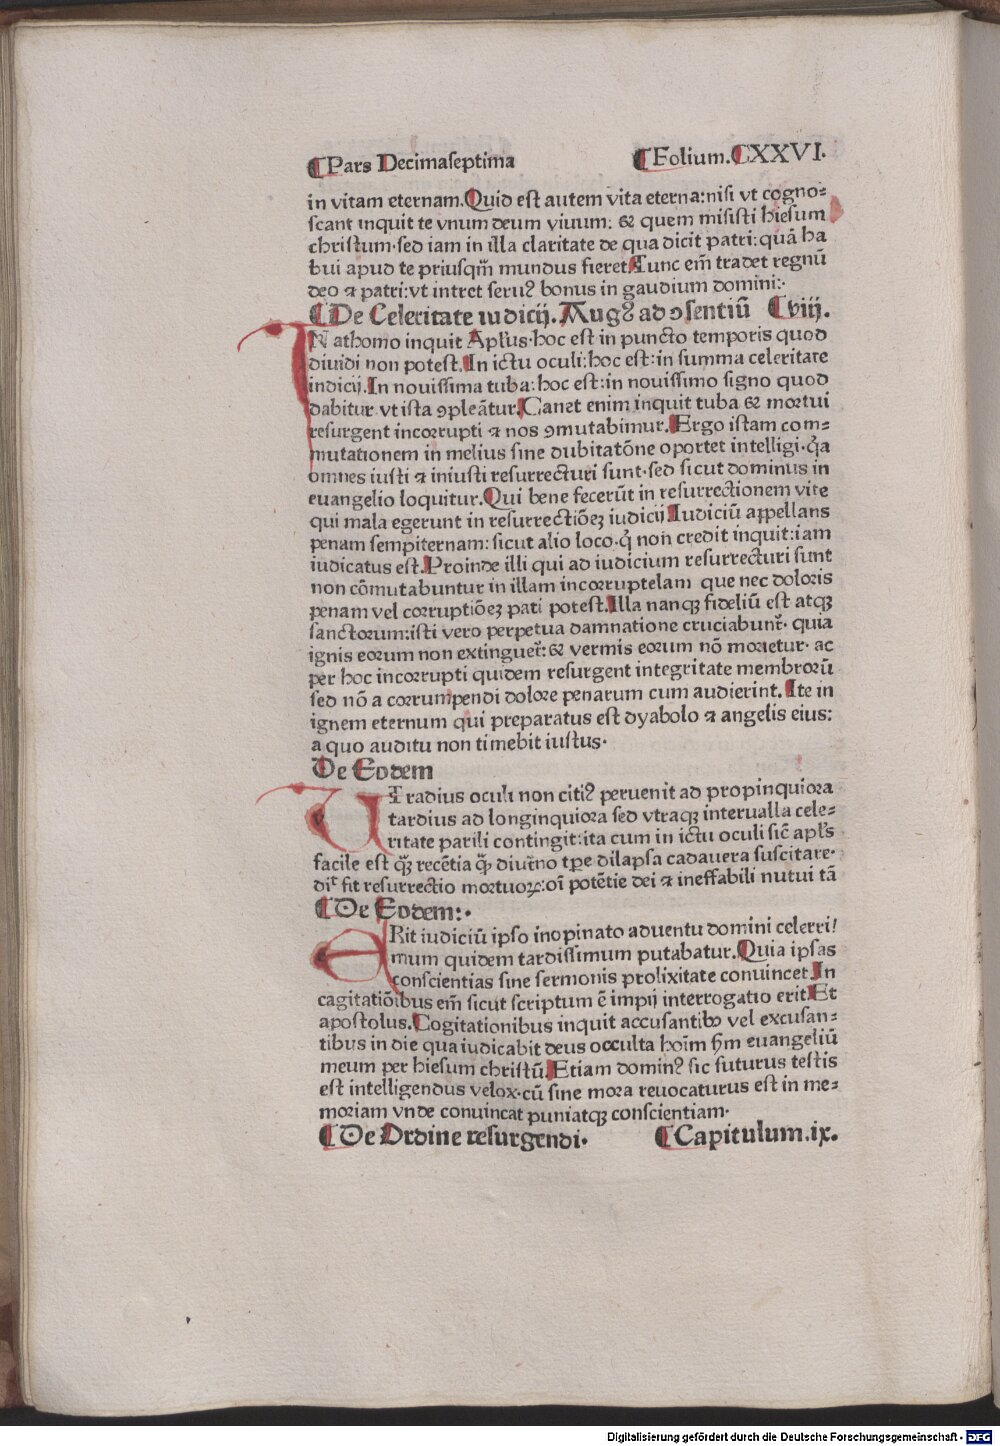 ¶Pars Decimaseptima ¶Folium.CXXVI.
in vitam eternam.Quid est autem vita eterna:nisi vt cogno⸗
scant inquit te vnum deum viuum: & quem misisti hiesum
christum·sed iam in illa claritate de qua dicit patri:quã ha
bui apud te priusqm̃ mundus fieret.Tunc em̃ tradet regnũ
deo ⁊ patri:vt intret seruꝰ bonus in gaudium domini:·
¶De Celeritate iudicij. Augꝰ ad ꝯsentiũ ¶viij.
IN athomo inquit Apl̃us·hoc est in puncto temporis quod
diuidi non potest.In ictu oculi:hoc est:in summa celeritate
indicij.In nouissima tuba:hoc est:in nouissimo signo quod
dabitur vt ista ꝯpleãtur.Canet enim inquit tuba & mortui
resurgent incorrupti ⁊ nos ꝯmutabimur.Ergo istam com⸗
mutationem in melius sine dubitatõne oportet intelligi·q̃a
omnes iusti ⁊ iniusti resurrecturi sunt·sed sicut dominus in
euangelio loquitur.Qui bene fecerũt in resurrectionem vite
qui mala egerunt in resurrectiõeꝫ iudicij.Iudiciũ appellans
penam sempiternam:sicut alio loco·q̃ non credit inquit:iam
iudicatus est.Proinde illi qui ad iudicium resurrecturi sunt
non cõmutabuntur in illam incorruptelam que nec doloris
penam vel corruptiõeꝫ pati potest.Illa nanqꝫ fideliũ est atqꝫ
sanctorum:isti vero perpetua damnatione cruciabunt̃· quia
ignis eorum non extinguet̃:& vermis eorum nõ morietur· ac
per hoc incorrupti quidem resurgent integritate membrorũ
sed nõ a corrumpendi dolore penarum cum audierint. Ite in
ignem eternum qui preparatus est dyabolo ⁊ angelis eius:
a quo auditu non timebit iustus·
De Eodem
VT radius oculi non citiꝰ peruenit ad propinquiora
tardius ad longinquiora sed vtraqꝫ interualla cele⸗
ritate parili contingit:ita cum in ictu oculi sic̃ apl̃s
facile est qꝫ̃ recẽtia qꝫ̃ diut̃no tp̃e dilapsa cadauera suscitare·
dit̃ fit resurrectio mortuoꝝ:oĩ potẽtie dei ⁊ ineffabili nutui tã
¶De Eodem:·
ERit iudiciũ ipso inopinato aduentu domini celerri/
mum quidem tardissimum putabatur.Quia ipsas
conscientias sine sermonis prolixitate conuincet.In
cagitatiõibus em̃ sicut scriptum ẽ impij interrogatio erit.Et
apostolus.Cogitationibus inquit accusantibꝰ vel excusan⸗
tibus in die qua iudicabit deus occulta hoĩm sm̃ euangeliũ
meum per hiesum christũ.Etiam dominꝰ sic futurus testis
est intelligendus velox·cũ sine mora reuocaturus est in me⸗
moriam vnde conuincat puniatqꝫ conscientiam·
¶De Ordine resurgendi· ¶Capitulum.ix.
Digitalisierung gefördert durch die Deutsche Forschungsgemeinschaft - DFG